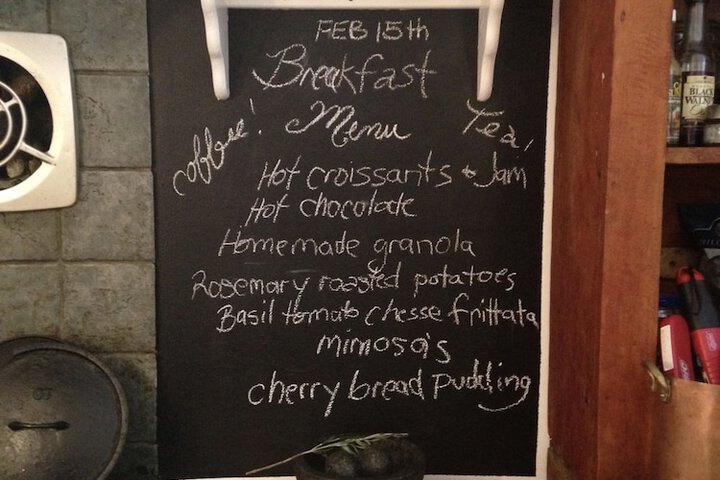 FEB 15th
Breakfast
Menu
coffee!
Tea!
Hot croissants & Jam
Hot chocolate
Homemade granola
Rosemary roasted potatoes
Basil tomato chesse frittata
mimosa's
cherry bread pudding
BLACK WALNUT